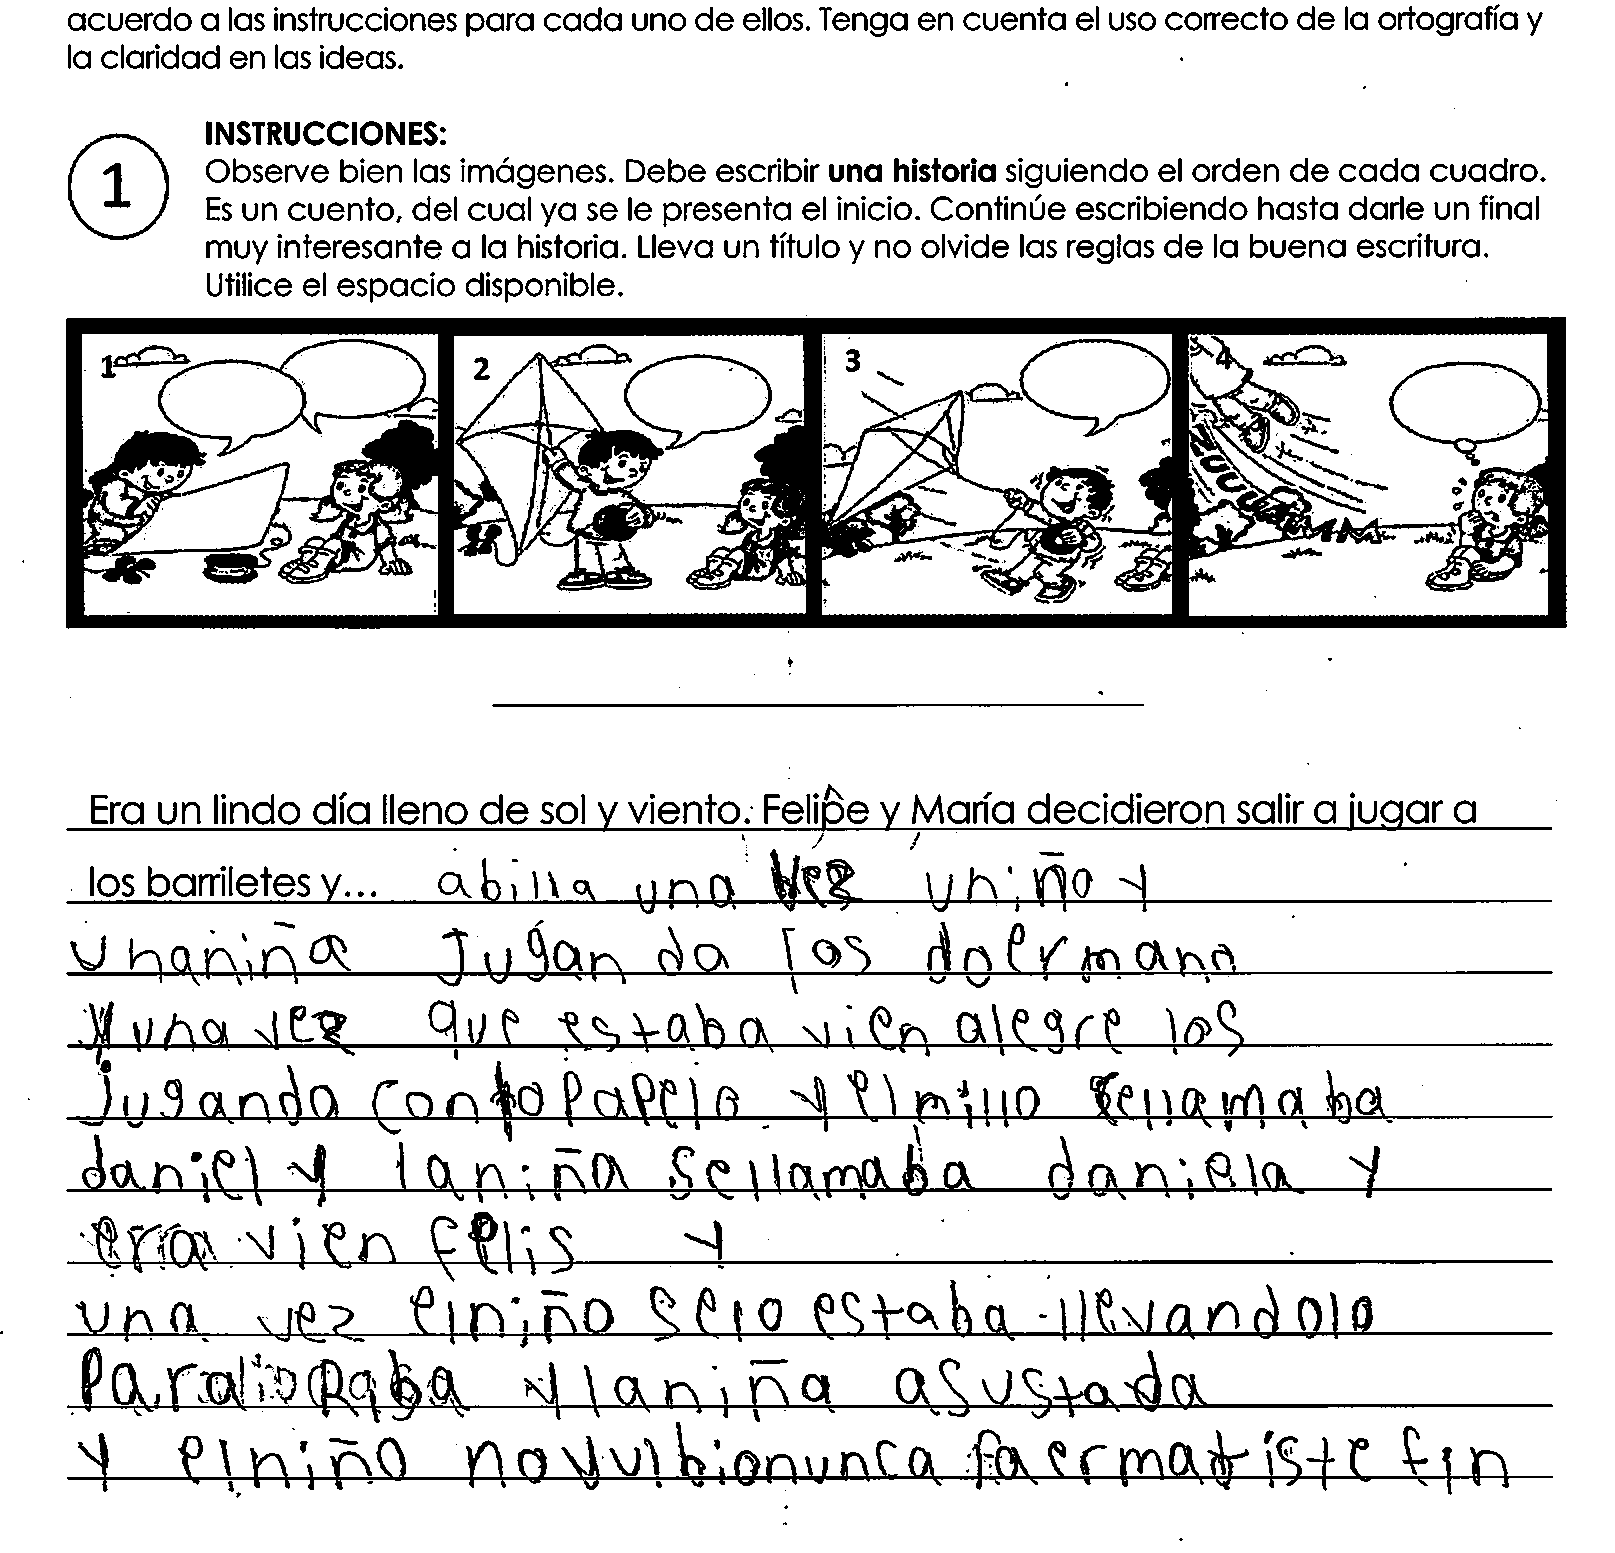 acuerdo a las instrucciones para cada uno de ellos. Tenga en cuenta el uso correcto de la ortografía y
la claridad en las ideas.
1
INSTRUCCIONES:
Observe bien las imágenes. Debe escribir una historia siguiendo el orden de cada cuadro.
Es un cuento, del cual ya se le presenta el inicio. Continúe escribiendo hasta darle un final
muy interesante a la historia. Lleva un título y no olvide las reglas de la buena escritura.
Utilice el espacio disponible.
1 2 3 4
Era un lindo día lleno de sol y viento. Felipe y María decidieron salir a jugar a
los barriletes y... abilla una vez uniño y
unaniña Jugan do los doermano
y una vez que estaba vien alegre los
Juganda con papelo y elmillo sellamaba
daniel y laniña sellamaba daniela y
era vien felis y
una vez elniño selo estaba llevandolo
y laniña asustada
y elniño novulbionunca faermatriste fin